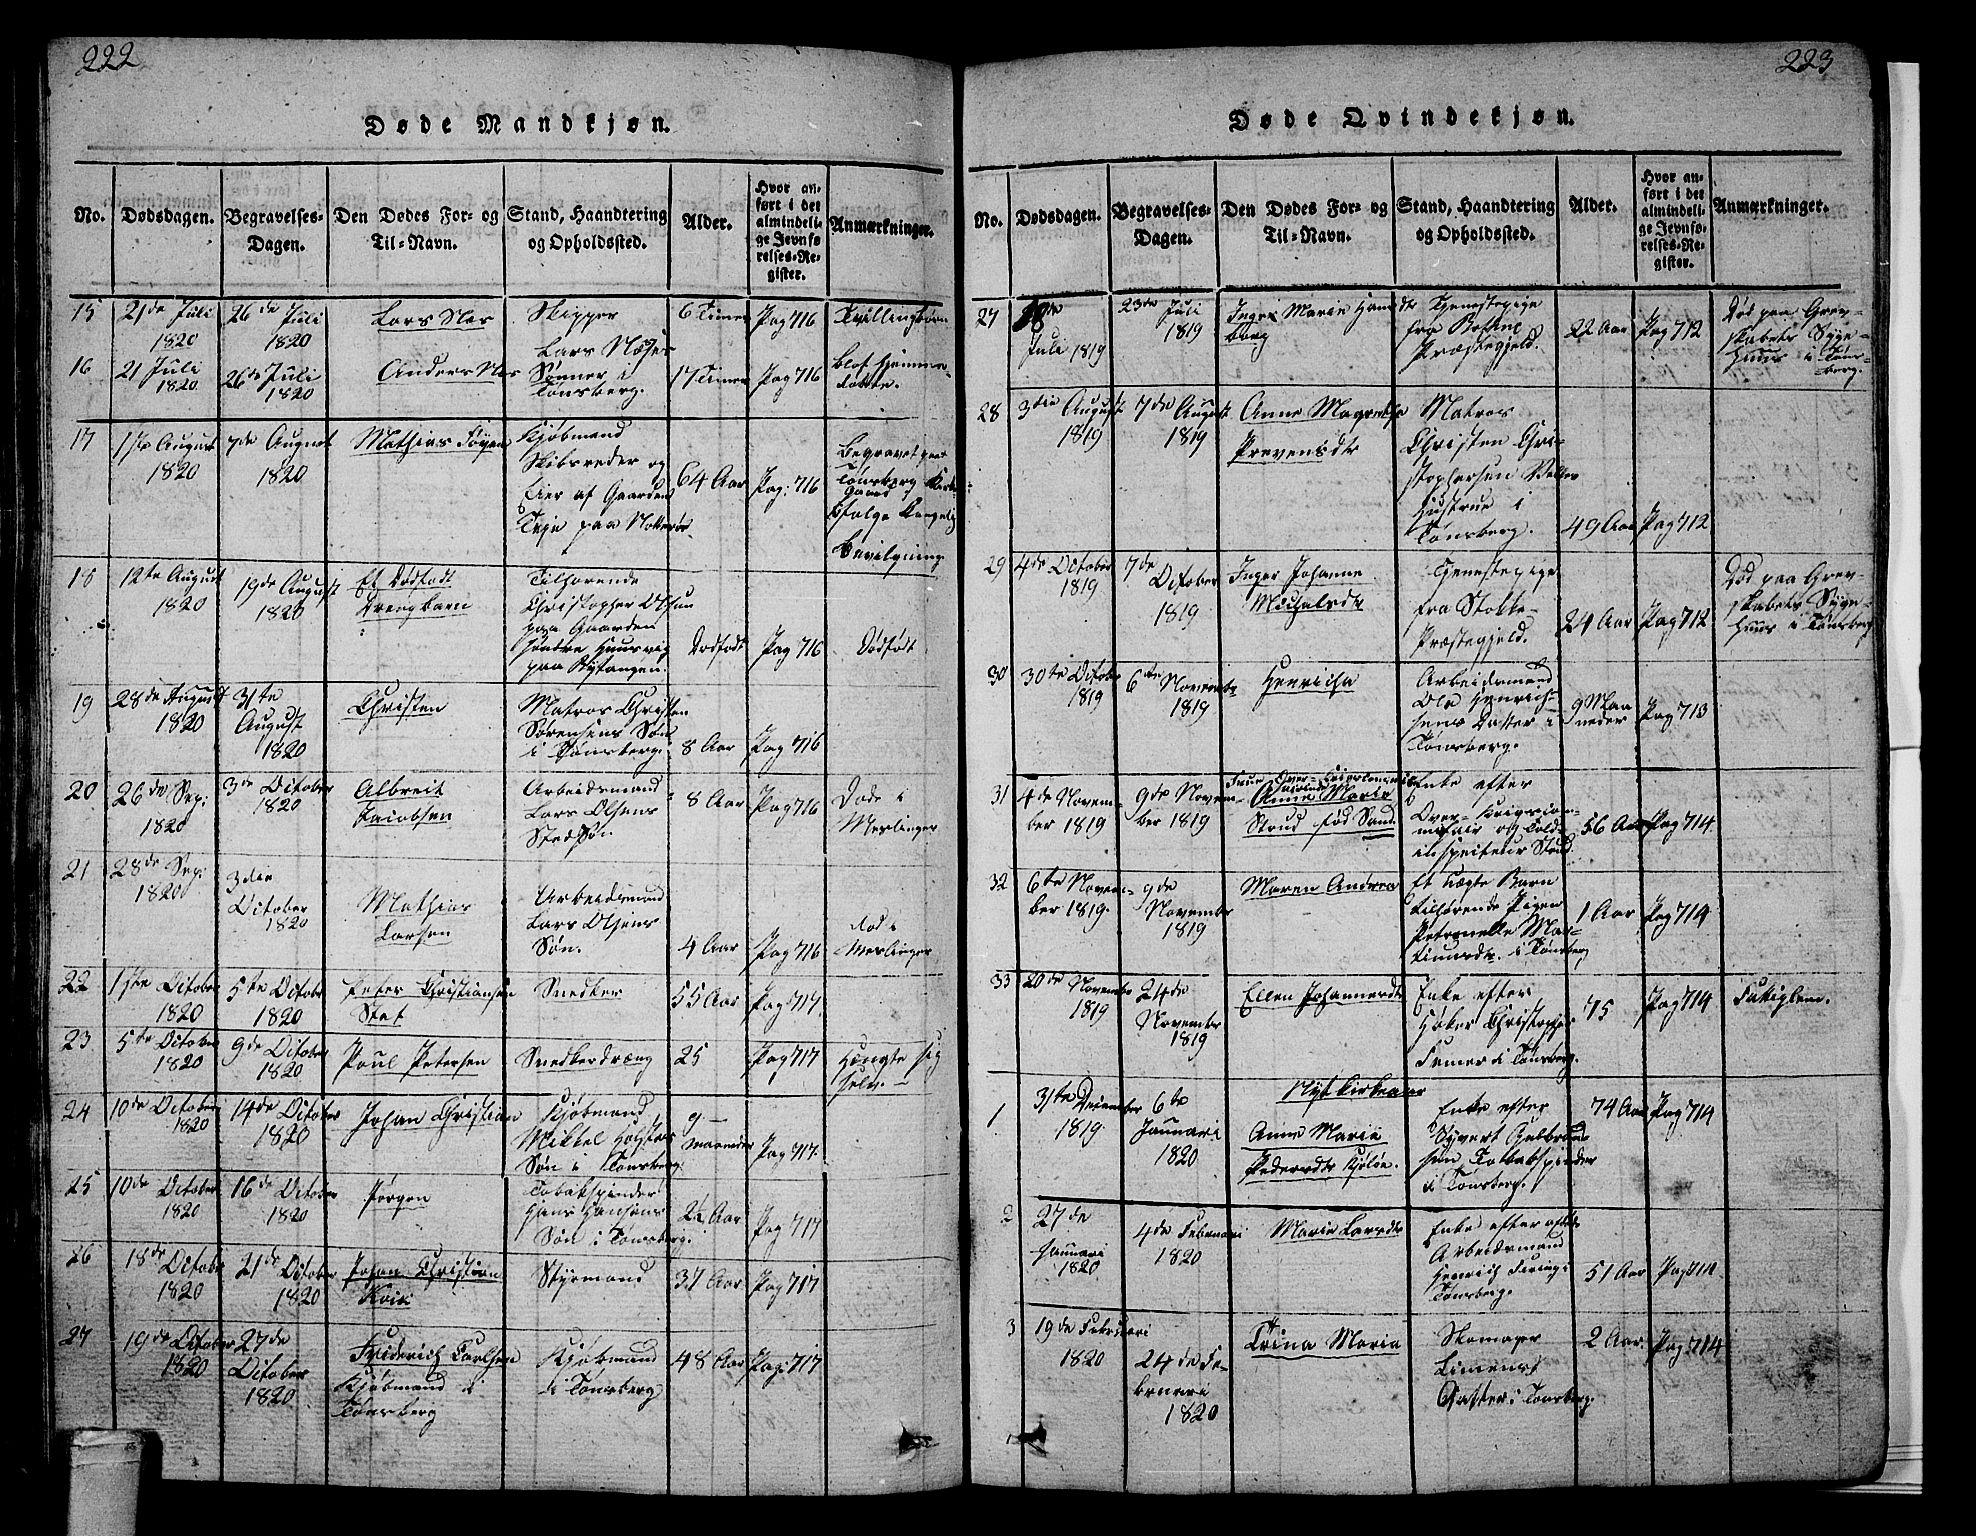 222
Døde Mandkjøn.
No.
Dødsdagen.
Begravelses-
Dagen.
Den Dødes For- og
Til-Navn.
Stand, Haandtering
og Opholdssted.
Alder.
Hvor an-
ført i det
almindeli-
ge Jevnfø-
relses-Re-
gister.
Anmærkninger.
15
21de Juli
1820
26de Juli
1820
Lars Nes
Skipper
Lars
6 Timer
Pag 716
Tvillingbørn
16
21 Juli
1820
26de Juli
1820
Anders Nes
Sønner i
Tønsberg.
17 Timer
Pag 716
blot hjemme-
døbte.
17
1ste August
1820
7de August
1820
Mathias Føyen
Kjøbmand
Skibsreder og
Eier af Gaarden
Teje paa Nøtterøe
64 Aar
Pag: 716
Begravet paa
Tønsberg
Bevilgning
18
12te August
1820
19de August
1820
Et Dødfødt
Drengbarn
Tilhørende
Christopher Olsen
paa Gaarden
Søndre
paa
Dødfødt
Pag 716
Dødfødt
19
28de August
1820
31te
August
1820
Christen
Matros Christen
Sørensens Søn
i Tønsberg.
8 Aar
Pag 716
20
26de Sep:
1820
3de October
1820
Albreit
Jacobsen
Arbeidsmand
Lars Olsens
Stedsøn
8 Aar
Pag 716
Døde i
Meslinger
21
28de Sep:
1820
3die
October
1820
Mathias
Larsen
Arbeidsmand
Lars Olsens
Søn.
4 Aar
Pag 716
død i
Meslinger
22
1ste October
1820
5te October
1820
Peter Christiansen
Snedker
55 Aar
Pag 717
23
5te October
1820
9de October
1820
Poul Petersen
Snedkerdræng
25
Pag 717
Hængte sig
selv. —
24
10de October
1820
14de October
1820
Johan Christian
Kjøbmand
Mikkel
Søn i Tønsberg.
9 —
maaneder
Pag 717.
25
10de October
1820
16de October
1820
Jørgen
Tobakspinder
Hans Hansens
Søn i Tønsberg.
2½ Aar
Pag 717
26
18de October
1820
21de October
1820
Johan Christian
Styrmand
37 Aar
Pag 717
27
19de October
1820
27de
October
1820
Friderich Carlsen
Kjøbmand i
Tønsberg
Kjøbmand
i Tønsberg
48 Aar
Pag: 717
223
Døde Qvindekjøn.
No.
Dødsdagen.
Begravelses-
Dagen.
Den Dødes For- og
Til-Navn.
Stand, Haandtering
og Opholdssted.
Alder.
Hvor an-
ført i det
almindeli-
ge Jevnfø-
relses-Re-
gister.
Anmærkninger.
27
Juli 1819
23de Juli
1819
Marie
Tjenestepige
fra
Præstegjeld.
22 Aar
Pag 712
Død paa Grev-
skabets Syge-
Huus i Tøns-
berg.
28
3die August
1819
7de August
1819
Anne Magrethe
Prevensdtr
Matros
Christen Chri-
stophersen
Hustrue i
Tønsberg.
49 Aar
Pag 712
29
4de October
1819
7de
October
1819
Inger Johanne
Michelsdtr
Tjenestepige
fra Stokke-
Præstegjeld.
24 Aar
Pag 712
Død paa Grev-
skabets Syge-
Huus i Tønsberg
30
30te October
1819
6te November
1819
Henricha
Arbeidsmand
Ole Henrich-
sens Datter i
Tønsberg.
9 Maa
neder
Pag 713
31
4de Novem-
ber 1819
9de Novem-
ber 1819
Anne Marie
Stoud fød Sand
Enke efter
Over-Krigscom-
misair og Told-
inspecteur Stoud
56 Aar
Pag 714
32
6te Novem-
ber 1819.
9de
November
1819
Maren Andrea
Et Uægte Barn
tilhørende Pigen
Petronelle Mar-
tinusdtr. i Tønsberg
1 Aar
Pag 714
33
20de November
1819
24de
November
1819
Ellen Johannesdtr
Enke efter
Høker Christopher
i Tønsberg.
75
Pag 714
Nyt Kirkeaar
1
31te December
1819.
6te
Januari
1820
Anne Marie
Pedersdtr
Enke efter
Syvert
i Tønsberg.
74 Aar
Pag 714
2
27de
Januari
1820
4de Februari
1820
Marie Larsdtr
Enke efter
Arbeidsmand
Henrich
Tønsberg.
51 Aar
3
19de Februari
1820
24de Fe-
bruari
1820
Trina Maria
Skomager
Datter i Tønsberg.
2 Aar.
Pag: 714